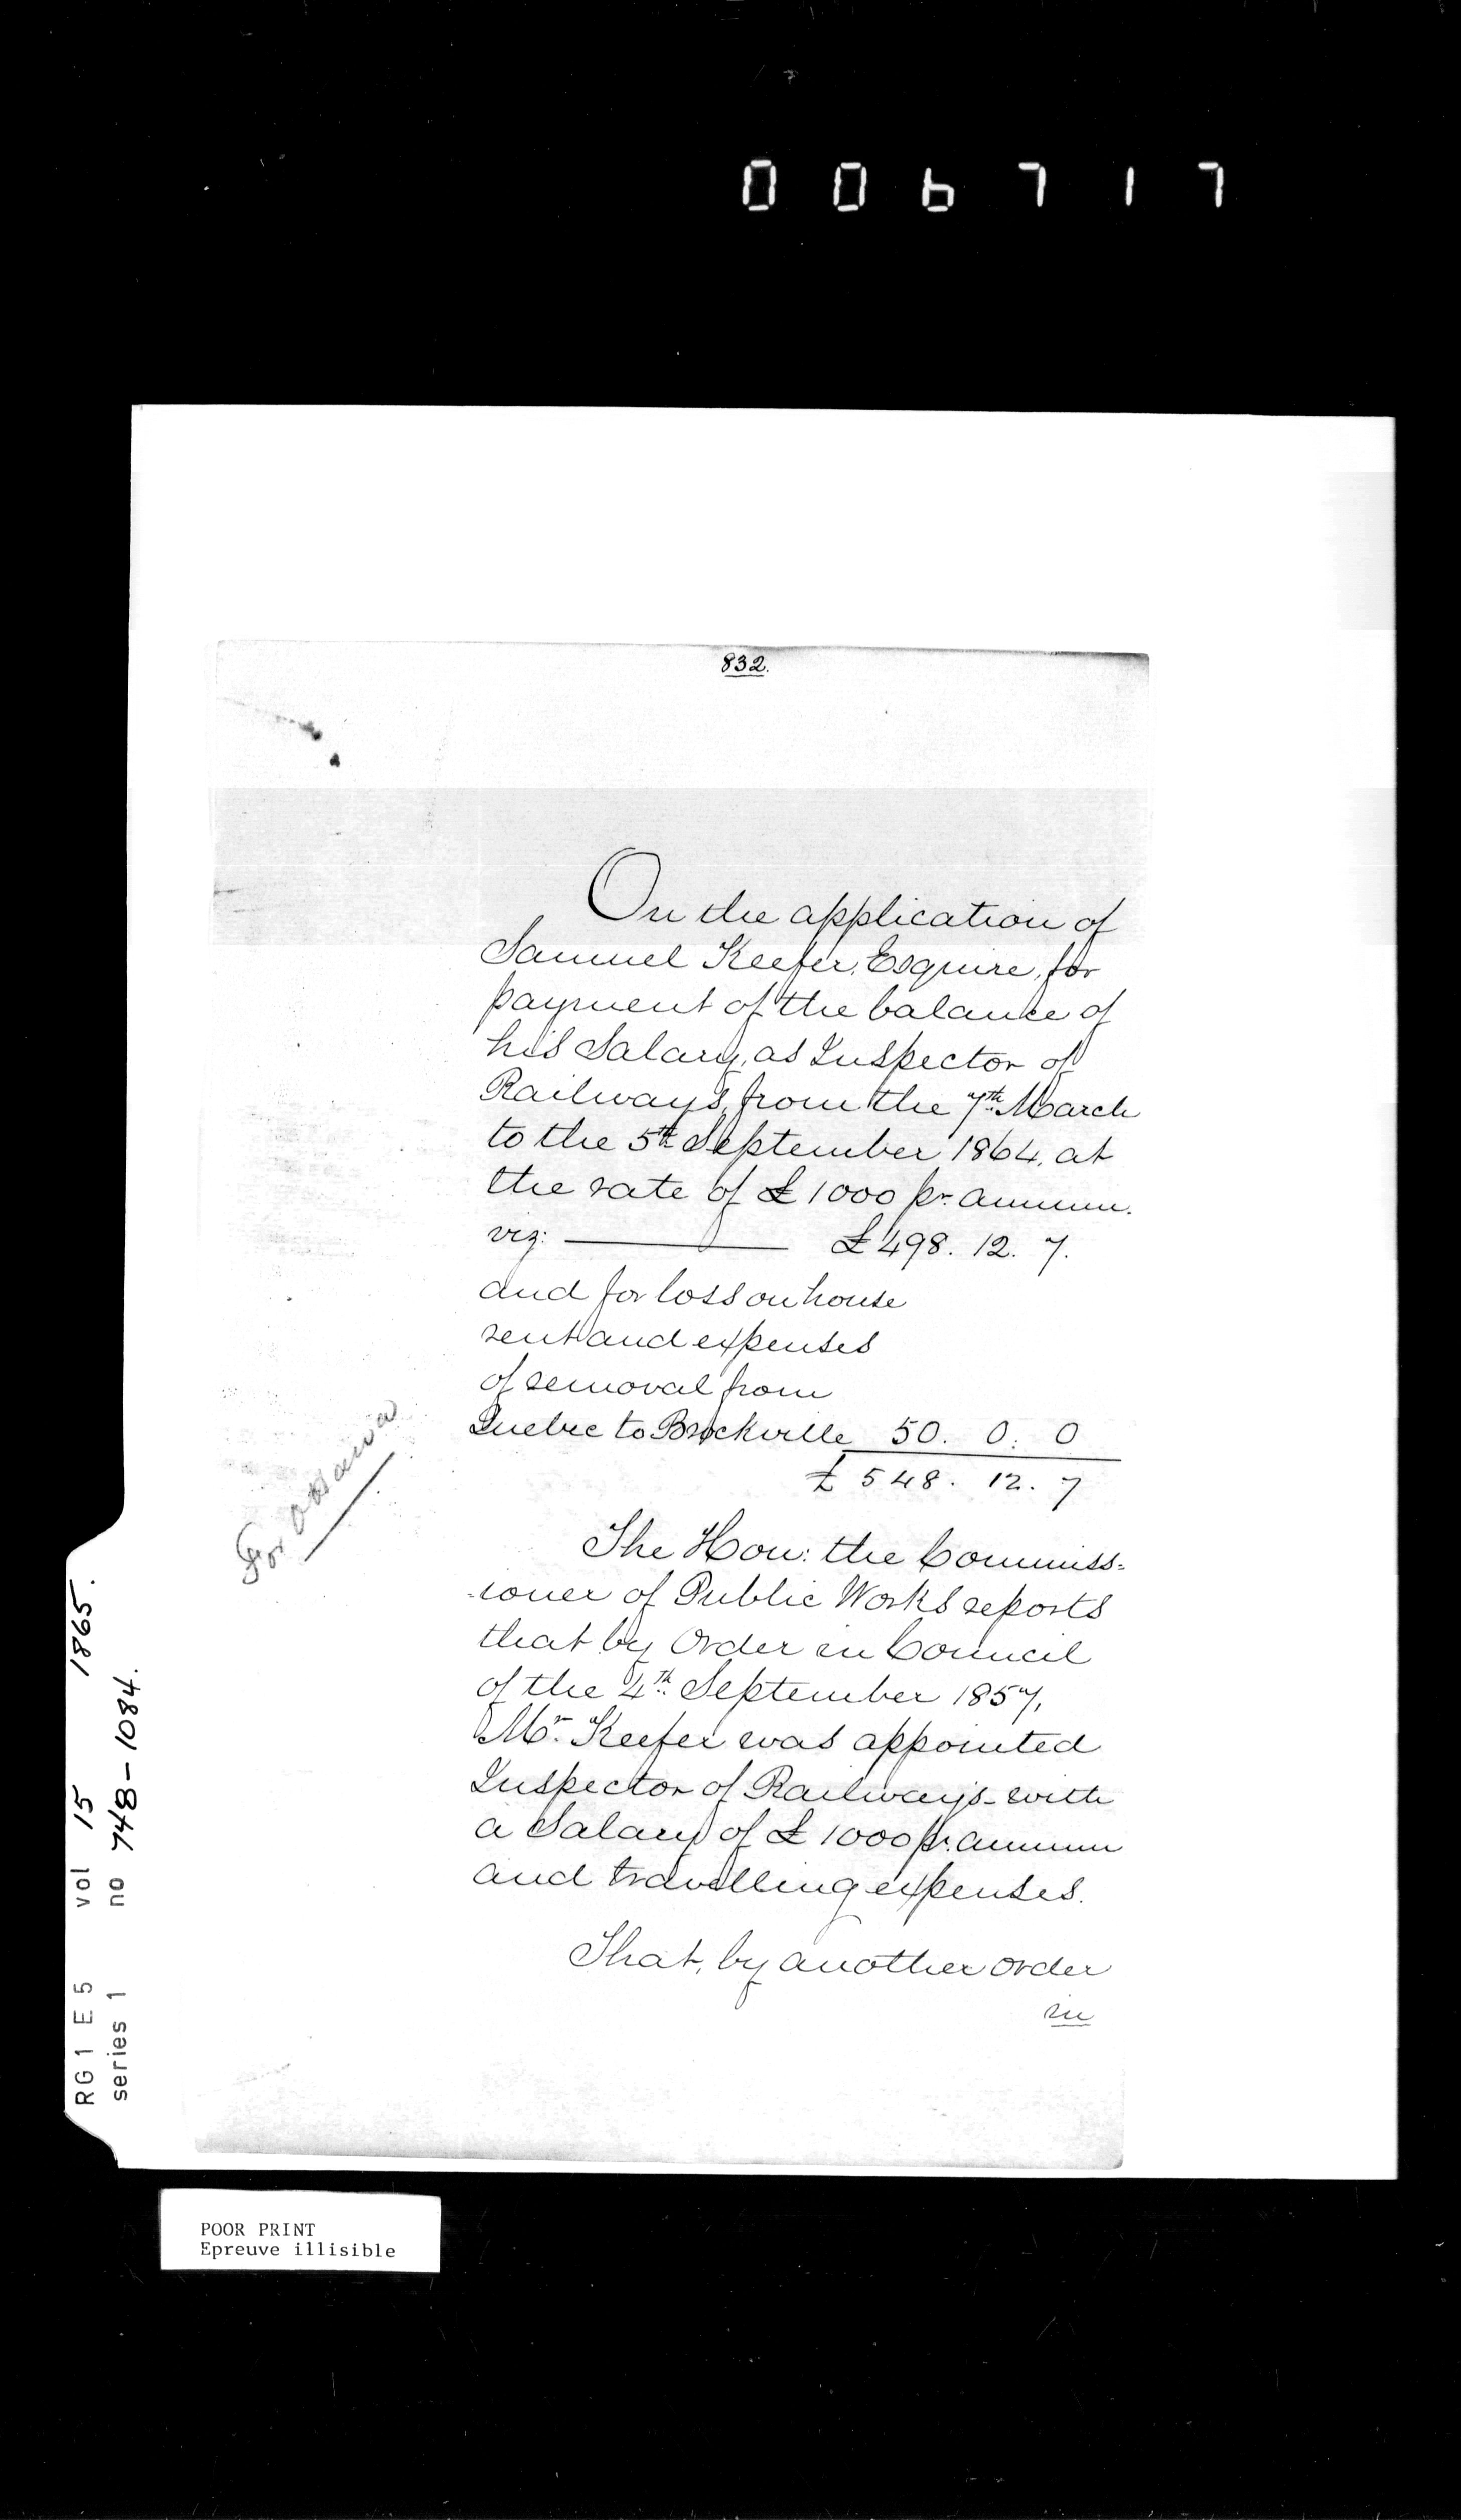 006717
832.
On the application of
Samuel Keefer, Esquire, for
payment of the balance of
his Salary, as Inspector of
Railways, from the 7th. March
to the 5th September 1864, at
the rate of £1000 pr. annum.
viz: £498. 12. 7.
and for loss on house
rent and expenses
of removal from
Quebec to Brockville 50. 0. 0
£ 548. 12. 7
For
The Hon: the Commiss-
-ioner of Public Works reports
that by Order in Council
of the 4th. September 1857,
Mr. Keefer was appointed
Inspector of Railways - with
a Salary of £1000 pr. annum
and travelling expenses.
That, by another order
in
RG1 E5 vol 15 1865.
series 1 no 748-1084.
POOR PRINT
Epreuve illisible